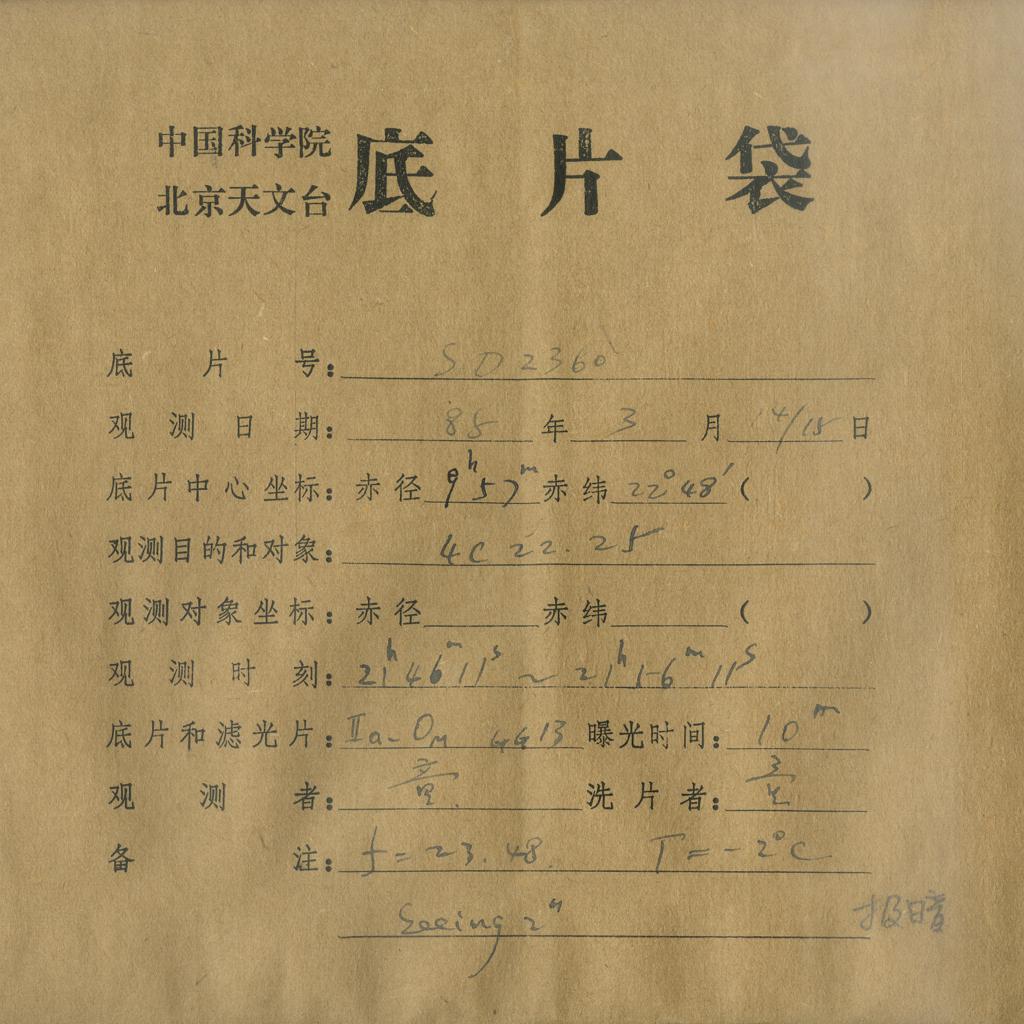 中国科学院
北京天文台 底片袋
底片号： SD2360
观测日期： 85年3月14/15日
底片中心坐标：赤径 9h57m 赤纬 22°48′（ ）
观测目的和对象： 4C 22.25
观测对象坐标：赤径 赤纬 （ ）
观测时刻： 21h46m11s ~ 21h56m11s
底片和滤光片： IIa-O GG13 曝光时间： 10m
观测者： 童 洗片者：
备注： f=23.48 T=-2°C
Seeing 2"